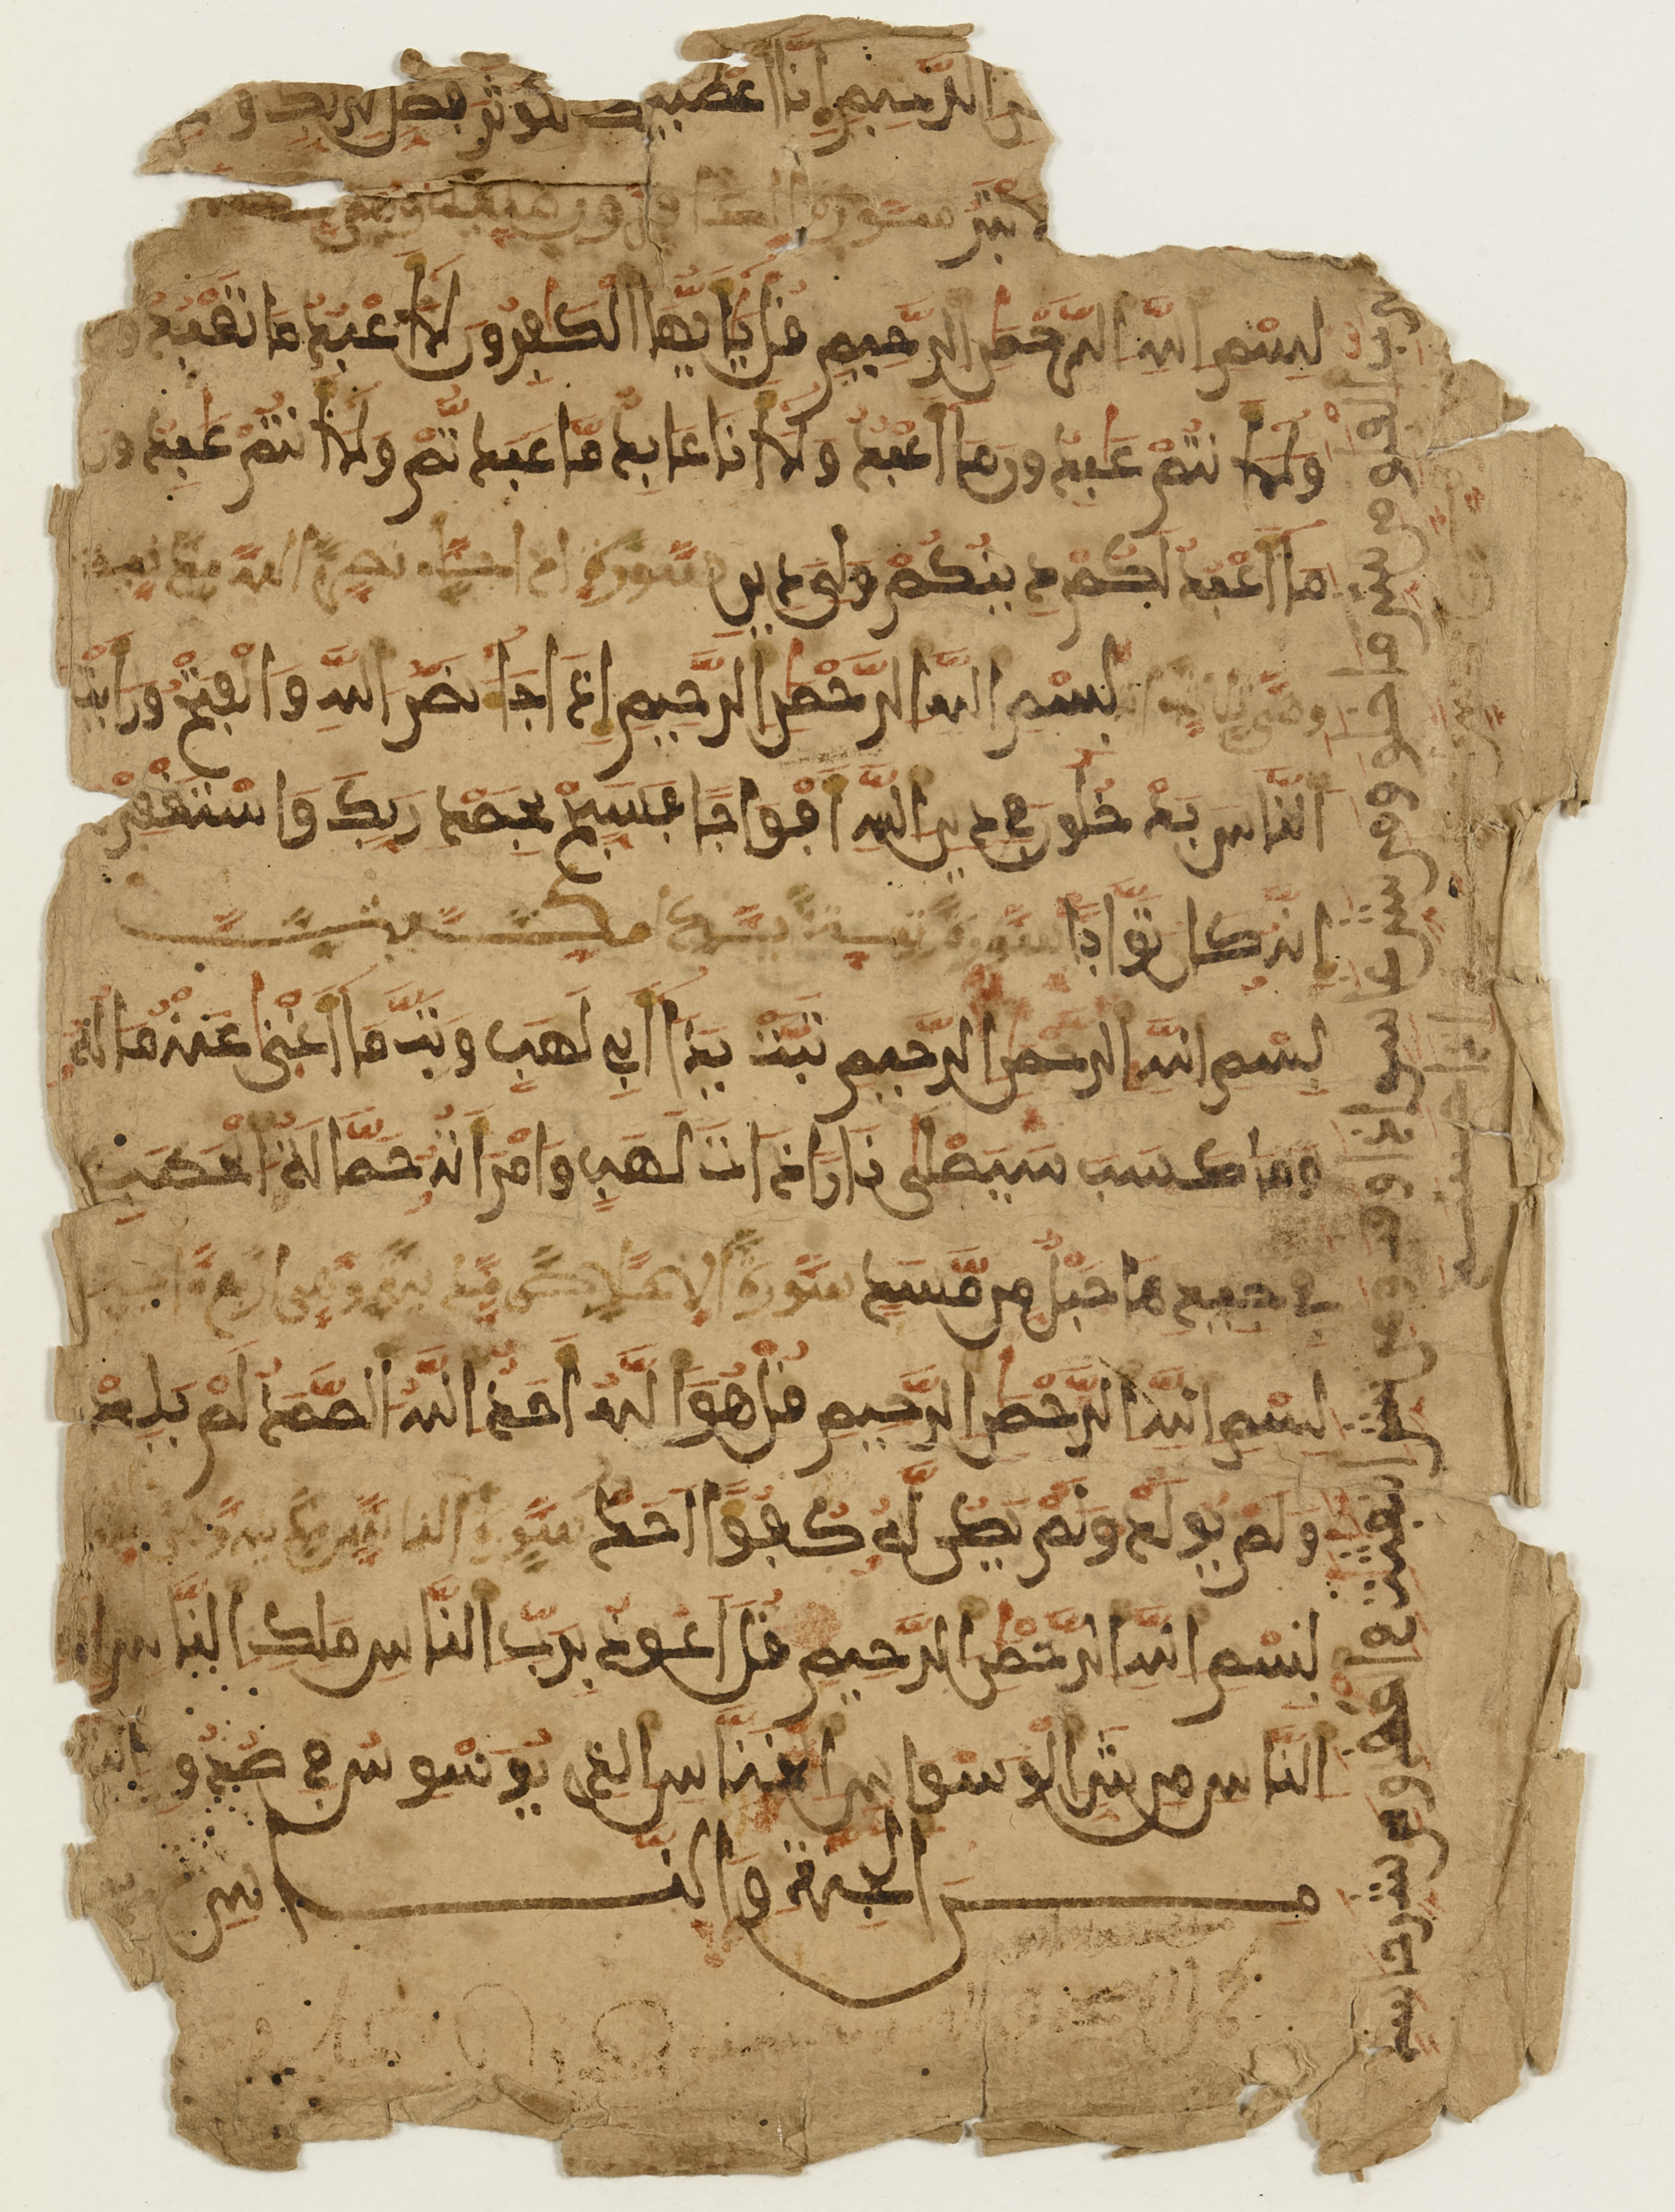 الرحيم إنا أعطينك الكوثر فصل لربك و
الابتر سورة الكافرون مكية وهي
بسم الله الرحمن الرحيم قل يأيها الكفرون لا أعبد ما تعبدون
ولا أنتم عبدون ما أعبد ولا أنا عابد ما عبدتم ولا أنتم عبدون
ما أعبد لكم دينكم ولي دين سورة اذا جاء نصر الله مدنية
وهي بسم الله الرحمن الرحيم إذا جاء نصر الله والفتح ورأيت
الناس يدخلون في دين الله أفواجا فسبح بحمد ربك واستغفره
إنه كان توابا سورة تبت مكية
بسم الله الرحمن الرحيم تبت يدا أبي لهب وتب ما أغنى عنه ماله
وما كسب سيصلى نارا ذات لهب وامرأته حمالة الحطب
في جيدها حبل من مسد سورة الاخلاص مكية وهي اربع
بسم الله الرحمن الرحيم قل هو الله أحد الله الصمد لم يلد
ولم يولد ولم يكن له كفوا أحد سورة الناس
بسم الله الرحمن الرحيم قل أعوذ برب الناس ملك الناس
الناس من شر الوسواس الخناس الذي يوسوس في صدور الناس
من الجنة والناس
برب الفلق من شر ما خلق ومن شر غاسق إذا وقب ومن شر النفثت في العقد ومن شر حاسد
إذا حسد